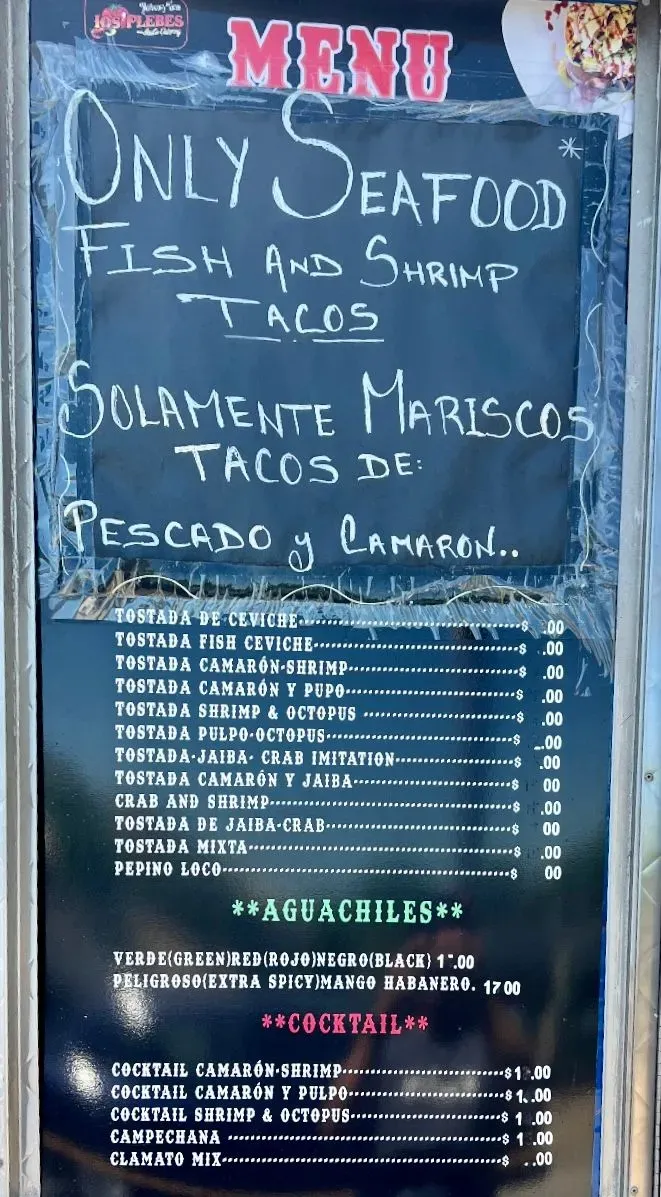 LOS PLEBES
MENU
ONLY SEAFOOD*
FISH AND SHRIMP
TACOS
SOLAMENTE MARISCOS
TACOS DE:
PESCADO y CAMARON..
TOSTADA DE CEVICHE $ .00
TOSTADA FISH CEVICHE $ .00
TOSTADA CAMARÓN-SHRIMP $ .00
TOSTADA CAMARÓN Y PUPO $ .00
TOSTADA SHRIMP & OCTOPUS $ .00
TOSTADA PULPO-OCTOPUS $ .00
TOSTADA-JAIBA- CRAB IMITATION $ .00
TOSTADA CAMARÓN Y JAIBA $ 00
CRAB AND SHRIMP $ .00
TOSTADA DE JAIBA-CRAB $ 00
TOSTADA MIXTA $ .00
PEPINO LOCO $ 00
**AGUACHILES**
VERDE(GREEN)RED(ROJO)NEGRO(BLACK) 1 .00
PELIGROSO(EXTRA SPICY)MANGO HABANERO. 17 00
**COCKTAIL**
COCKTAIL CAMARÓN-SHRIMP $1 .00
COCKTAIL CAMARÓN Y PULPO $1 .00
COCKTAIL SHRIMP & OCTOPUS $1 .00
CAMPECHANA $1 .00
CLAMATO MIX $ .00